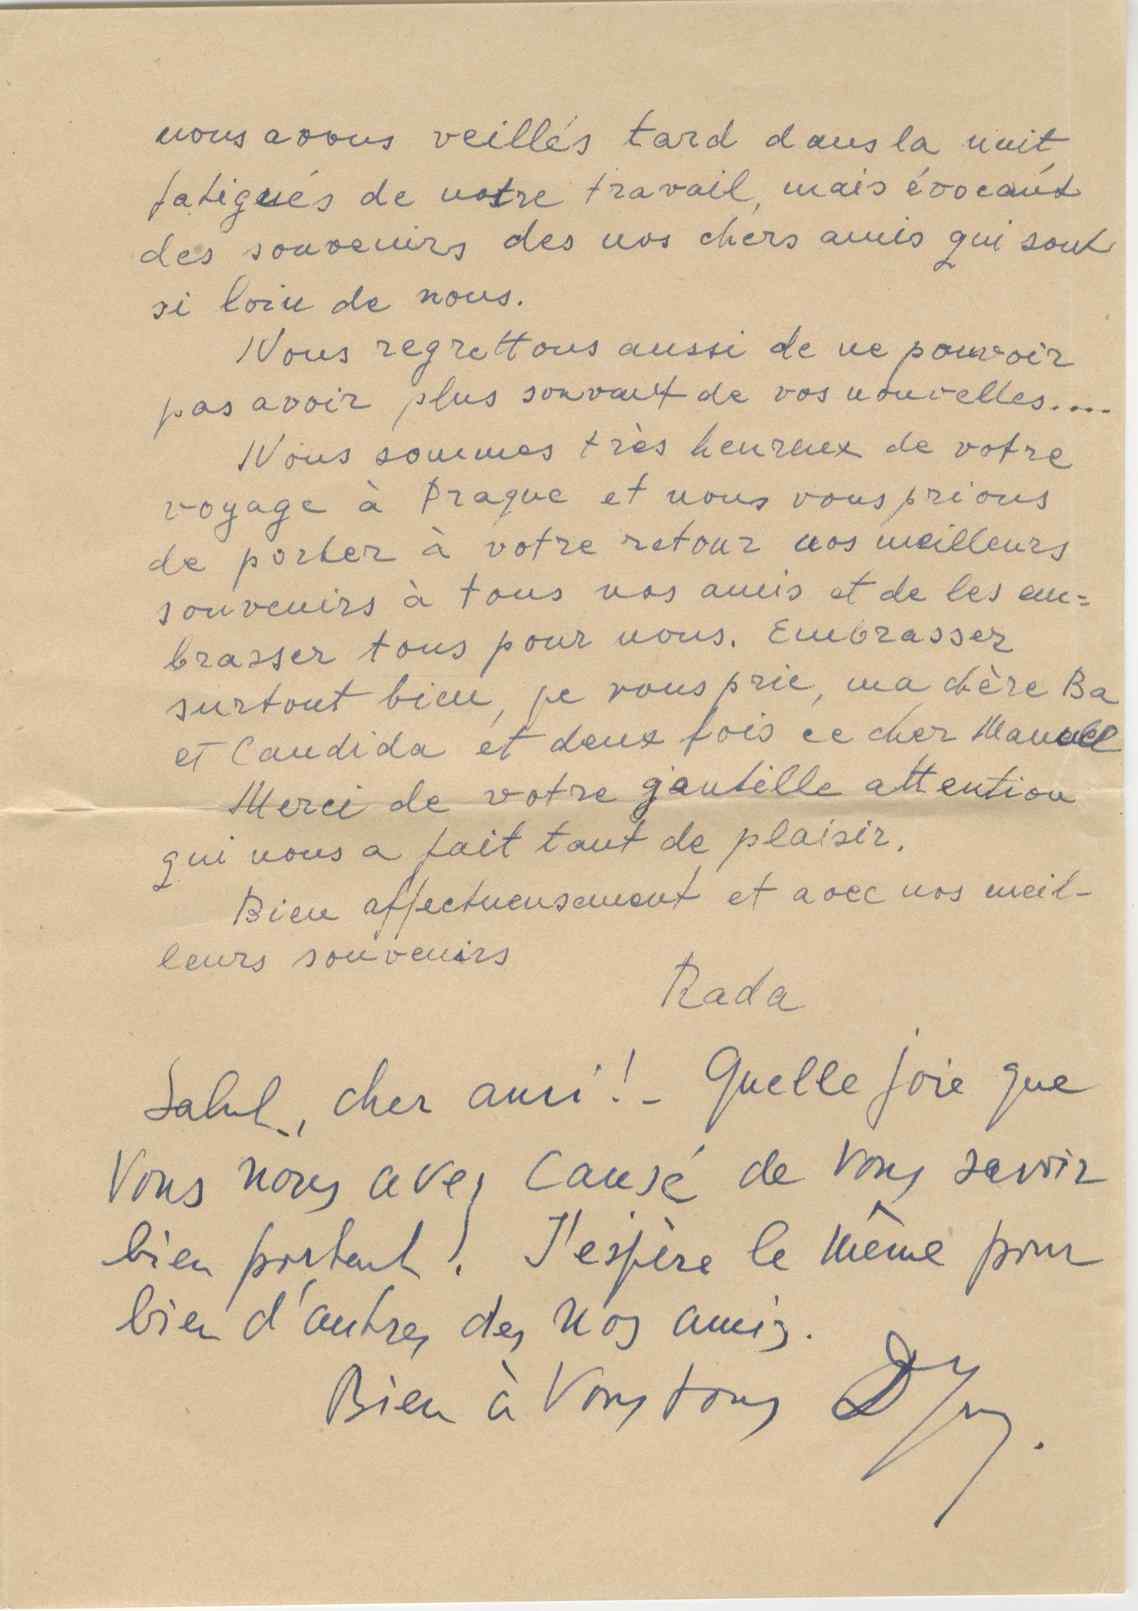 nous avons veillés tard dans la nuit
fatigués de notre travail, mais évocant
des souvenirs des nos chers amis qui sont
si loin de nous.
Nous regrettons aussi de ne pouvoir
pas avoir plus souvant de vos nouvelles....
Nous sommes très heureux de votre
voyage à Prague et nous vous prions
de porter à votre retour nos meilleurs
souvenirs à tous nos amis et de les em=
brasser tous pour nous. Embrasser
surtout bien, je vous prie, ma chère Ba
et Candida et deux fois ce cher Manuel
Merci de votre gantille attention
qui nous a fait tant de plaisir.
Bien affectueusement et avec nos meil-
leurs souvenirs
Rada
Salut, cher ami! - Quelle joie que
Vous nous avez causé de Vous savoir
bien portant! J'espère le même pour
bien d'autres des nos amis.
Bien à Vous tous